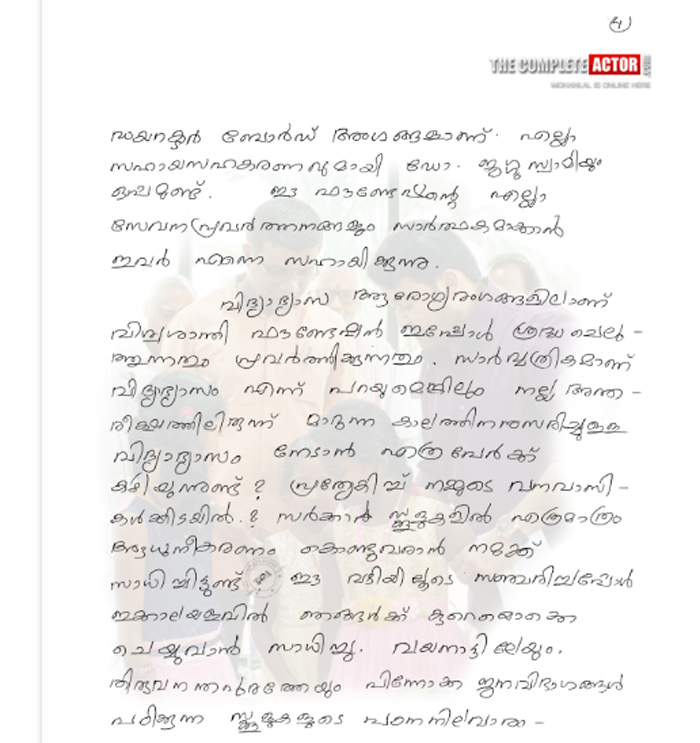 (4)
THE COMPLETE ACTOR
MOHANLAL IS ONLINE HERE
ഡയറക്ടർ ബോർഡ് അംഗങ്ങളാണ്. എല്ലാ
സഹായസഹകരണവുമായി ഡോ. ജഗ്ഗു സ്വാമിയും
ഒപ്പമുണ്ട്. ഈ ഫൗണ്ടേഷന്റെ എല്ലാ
സേവനപ്രവർത്തനങ്ങളും സാർത്ഥകമാക്കാൻ
ഇവർ എന്നെ സഹായിക്കുന്നു.
വിദ്യാഭ്യാസ ആരോഗ്യരംഗങ്ങളിലാണ്
വിശ്വശാന്തി ഫൗണ്ടേഷൻ ഇപ്പോൾ ശ്രദ്ധ ചെലു -
ത്തുന്നതും പ്രവർത്തിക്കുന്നതും. സാർവ്വത്രികമാണ്
വിദ്യാഭ്യാസം എന്ന് പറയുമെങ്കിലും നല്ല അന്ത -
രീക്ഷത്തിലിരുന്ന് മാറുന്ന കാലത്തിനനുസരിച്ചുള്ള
വിദ്യാഭ്യാസം നേടാൻ എത്ര പേർക്ക്
കഴിയുന്നുണ്ട് ? പ്രത്യേകിച്ച് നമ്മുടെ വനവാസി -
കൾക്കിടയിൽ. ? സർക്കാർ സ്കൂളുകളിൽ എത്രമാത്രം
ആധുനീകരണം കൊണ്ടുവരാൻ നമുക്ക്
സാധിച്ചിട്ടുണ്ട് ഈ വഴിയിലൂടെ സഞ്ചരിച്ചപ്പോൾ
ഇക്കാലയളവിൽ ഞങ്ങൾക്ക് കുറെയൊക്കെ
ചെയ്യുവാൻ സാധിച്ചു. വയനാട്ടിലേയും.
തിരുവനന്തപുരത്തേയും പിന്നോക്ക ജനവിഭാഗങ്ങൾ
പഠിക്കുന്ന സ്കൂളുകളുടെ പഠനനിലവാര -